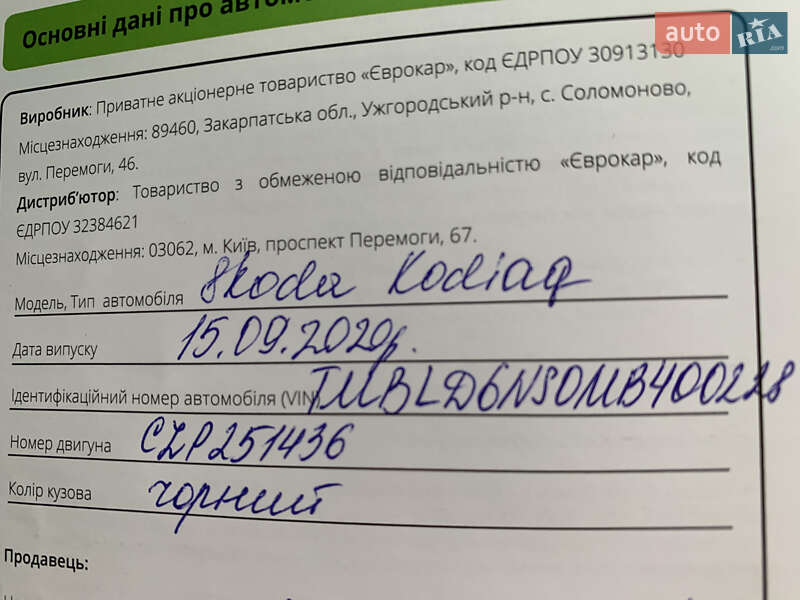 Основні дані про автомо
auto RIA .com
Виробник: Приватне акціонерне товариство «Єврокар», код ЄДРПОУ 30913130
Місцезнаходження: 89460, Закарпатська обл., Ужгородський р-н, с. Соломоново,
вул. Перемоги, 46.
Дистриб'ютор: Товариство з обмеженою відповідальністю «Єврокар», код
ЄДРПОУ 32384621
Місцезнаходження: 03062, м. Київ, проспект Перемоги, 67.
Модель, Тип автомобіля Skoda Kodiaq
Дата випуску 15.09.2020р.
Ідентифікаційний номер автомобіля (VIN) TMBLD6NS0MB400228
Номер двигуна CZP251436
Колір кузова чорний
Продавець: